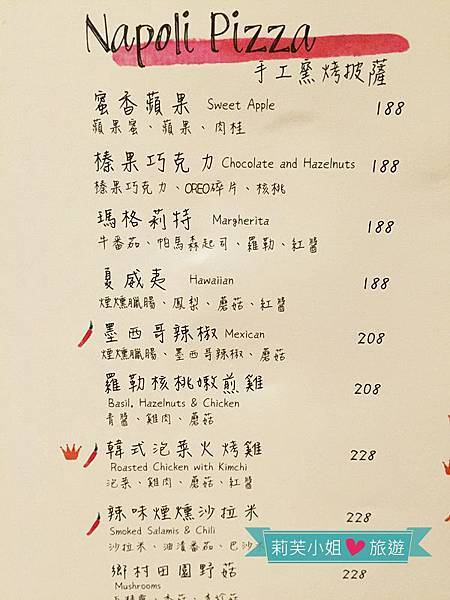 Napoli Pizza
手工窯烤披薩
蜜香蘋果 Sweet Apple 188
蘋果蜜、蘋果、肉桂
榛果巧克力 Chocolate and Hazelnuts 188
榛果巧克力、OREO碎片、核桃
瑪格莉特 Margherita 188
牛番茄、帕馬森起司、羅勒、紅醬
夏威夷 Hawaiian 188
煙燻臘腸、鳳梨、蘑菇、紅醬
墨西哥辣椒 Mexican 208
煙燻臘腸、墨西哥辣椒、蘑菇
羅勒核桃嫩煎雞 208
Basil, Hazelnuts & Chicken
青醬、雞肉、蘑菇
韓式泡菜火烤雞 228
Roasted Chicken with Kimchi
泡菜、雞肉、蘑菇、紅醬
辣味煙燻沙拉米 228
Smoked Salamis & Chili
沙拉米、油漬番茄、巴沙
莉芙小姐 旅遊
鄉村田園野菇 228
Mushrooms